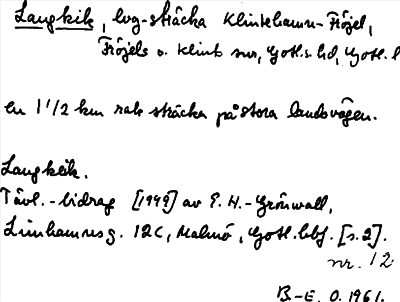 Langkik, lvg-sträcka Klintehamn-Fröjel,
Fröjels o. Klinte snr, Gotl.s. hd, Gotl. l
en 1 1/2 km rak sträcka på stora landsvägen.
Langkik.
Tävl.-bidrag [1949] av E. H.-Grönwall,
Limhamnsg. 12C, Malmö, Gotl.bbf. [s.2].
nr. 12
B.-E. O. 1961.